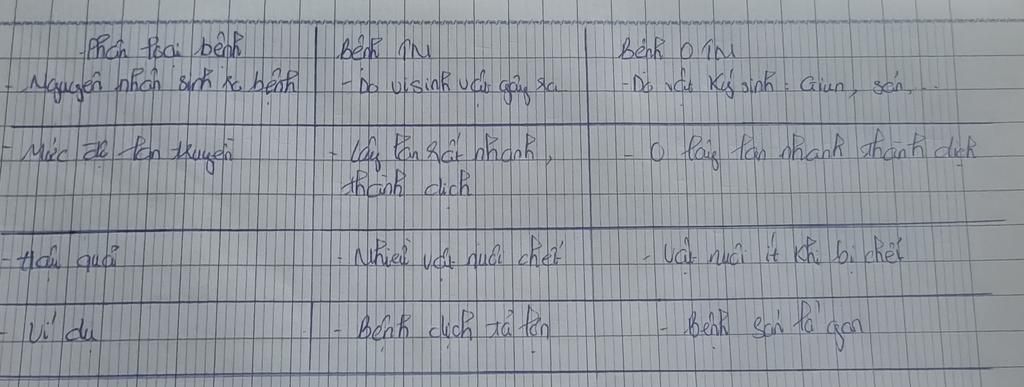 Phân loại bệnh | Bệnh TN | Bệnh O TN
- Nguyên nhân sinh ra bệnh | - Do vi sinh vật gây ra | - Do vật ký sinh: Giun, sán,...
- Mức độ lan truyền | - Lây lan rất nhanh, | - O lây lan nhanh thành dịch
thành dịch
- Hậu quả | - Nhiều vật nuôi chết | - Vật nuôi ít khi bị chết
- Ví dụ | - Bệnh dịch tả lợn | - Bệnh sán lá gan